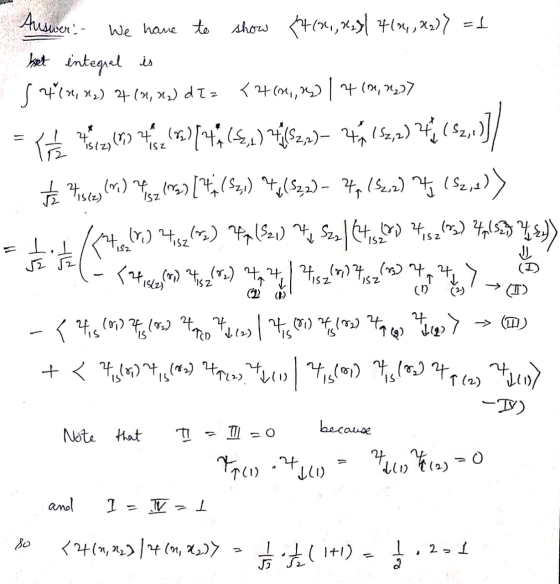 Answer:- We have to show ⟨Ψ(x₁,x₂)| Ψ(x₁,x₂)⟩ = 1
let integral is
∫ Ψ*(x₁,x₂) Ψ(x₁,x₂) dτ = ⟨Ψ(x₁,x₂) | Ψ(x₁,x₂)⟩
= ⟨ 1/√2 Ψ*1s(z)(r₁) Ψ*1sz(r₂) [Ψ*↑(Sz,1) Ψ*↓(Sz,2) – Ψ*↑(Sz,2) Ψ*↓(Sz,1)] |
1/√2 Ψ1s(z)(r₁) Ψ1sz(r₂) [Ψ↑(Sz1) Ψ↓(Sz2) – Ψ↑(Sz,2) Ψ↓(Sz,1) ⟩
= 1/√2 · 1/√2 ( ⟨Ψ1sz(r₁) Ψ1sz(r₂) Ψ↑(Sz1) Ψ↓ Sz2 | (Ψ1sz(r₁) Ψ1sz(r₂) Ψ↑(Sz1) Ψ↓Sz2)⟩
⇓ (I)
– ⟨Ψ1s(z)(r₁) Ψ1sz(r₂) Ψ↑(2) Ψ↓(1) | Ψ1sz(r₁) Ψ1sz(r₂) Ψ↑(1) Ψ↓(2) ⟩ → (II)
– ⟨ Ψ1s(r₁) Ψ1s(r₂) Ψ↑(1) Ψ↓(2) | Ψ1s(r₁) Ψ1s(r₂) Ψ↑(2) Ψ↓(1) ⟩ → (III)
+ ⟨ Ψ1s(r₁) Ψ1s(r₂) Ψ↑(2) Ψ↓(1) | Ψ1s(r₁) Ψ1s(r₂) Ψ↑(2) Ψ↓(1)⟩
– IV)
Note that II = III = 0 because
Ψ↑(1) · Ψ↓(1) = Ψ↓(1) Ψ↑(2) = 0
and I = IV = 1
so ⟨Ψ(x₁,x₂) | Ψ(x₁,x₂)⟩ = 1/√2 · 1/√2 (1+1) = 1/2 · 2 = 1